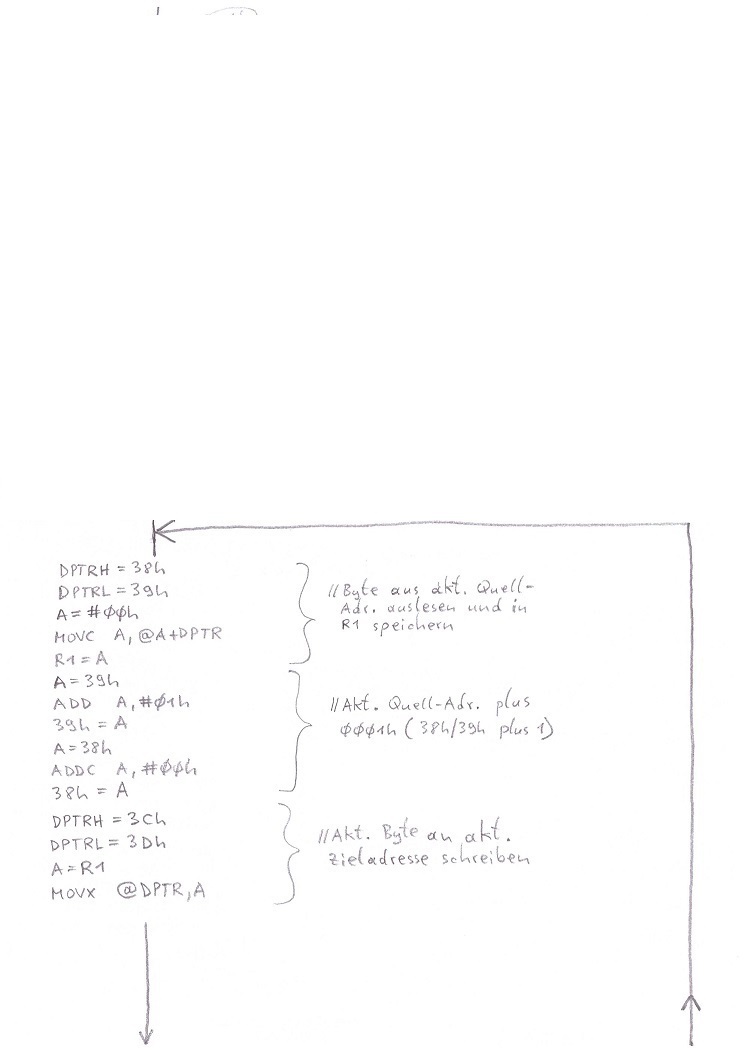 DPTRH = 38h
DPTRL = 39h
A = #ØØh
MOVC A, @A+DPTR
R1 = A
//Byte aus akt. Quell-
Adr. auslesen und in
R1 speichern
A = 39h
ADD A, #Ø1h
39h = A
A = 38h
ADDC A, #ØØh
38h = A
//Akt. Quell-Adr. plus
ØØØ1h (38h/39h plus 1)
DPTRH = 3Ch
DPTRL = 3Dh
A = R1
MOVX @DPTR, A
//Akt. Byte an akt.
Zieladresse schreiben